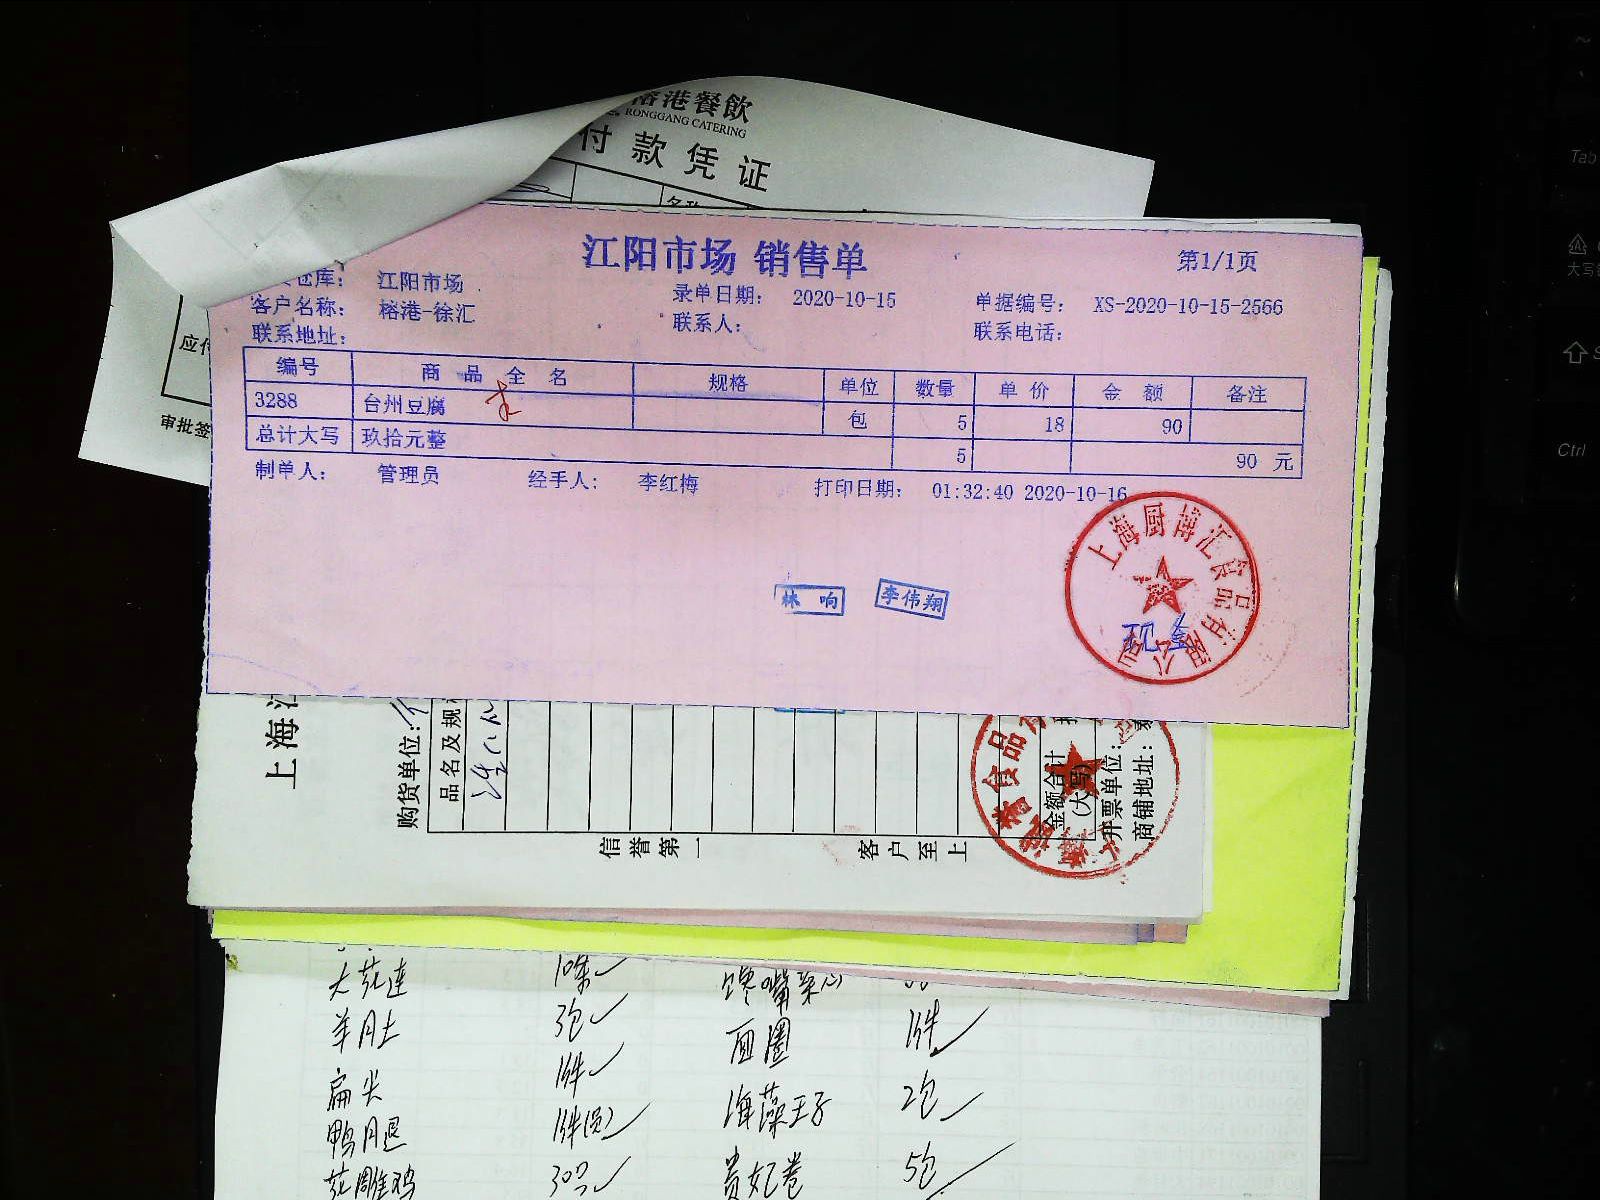 榕港餐飲
RONGGANG CATERING
付款凭证
名称
江阳市场 销售单
第1/1页
仓库： 江阳市场
录单日期： 2020-10-15
单据编号： XS-2020-10-15-2566
客户名称： 榕港-徐汇
联系人：
联系电话：
联系地址：
编号 商品全名 规格 单位 数量 单价 金额 备注
3288 台州豆腐 包 5 18 90
总计大写 玖拾元整 5 90 元
制单人： 管理员 经手人： 李红梅 打印日期： 01:32:40 2020-10-16
应付
审批签
上海厨博汇食品有限公司
现金
林响
李伟翔
上海江
购货单位：
品名及规格
信誉第一
客户至上
金额合计
(大写)
开票单位：
商铺地址：
大花连 10条 馋嘴菜心
羊肚 3包 面圈 1件
扁尖 1件 海藻王子 2包
鸭腿 1件 贵妃卷 5包
花雕鸡 30只
Tab
大写
Ctrl